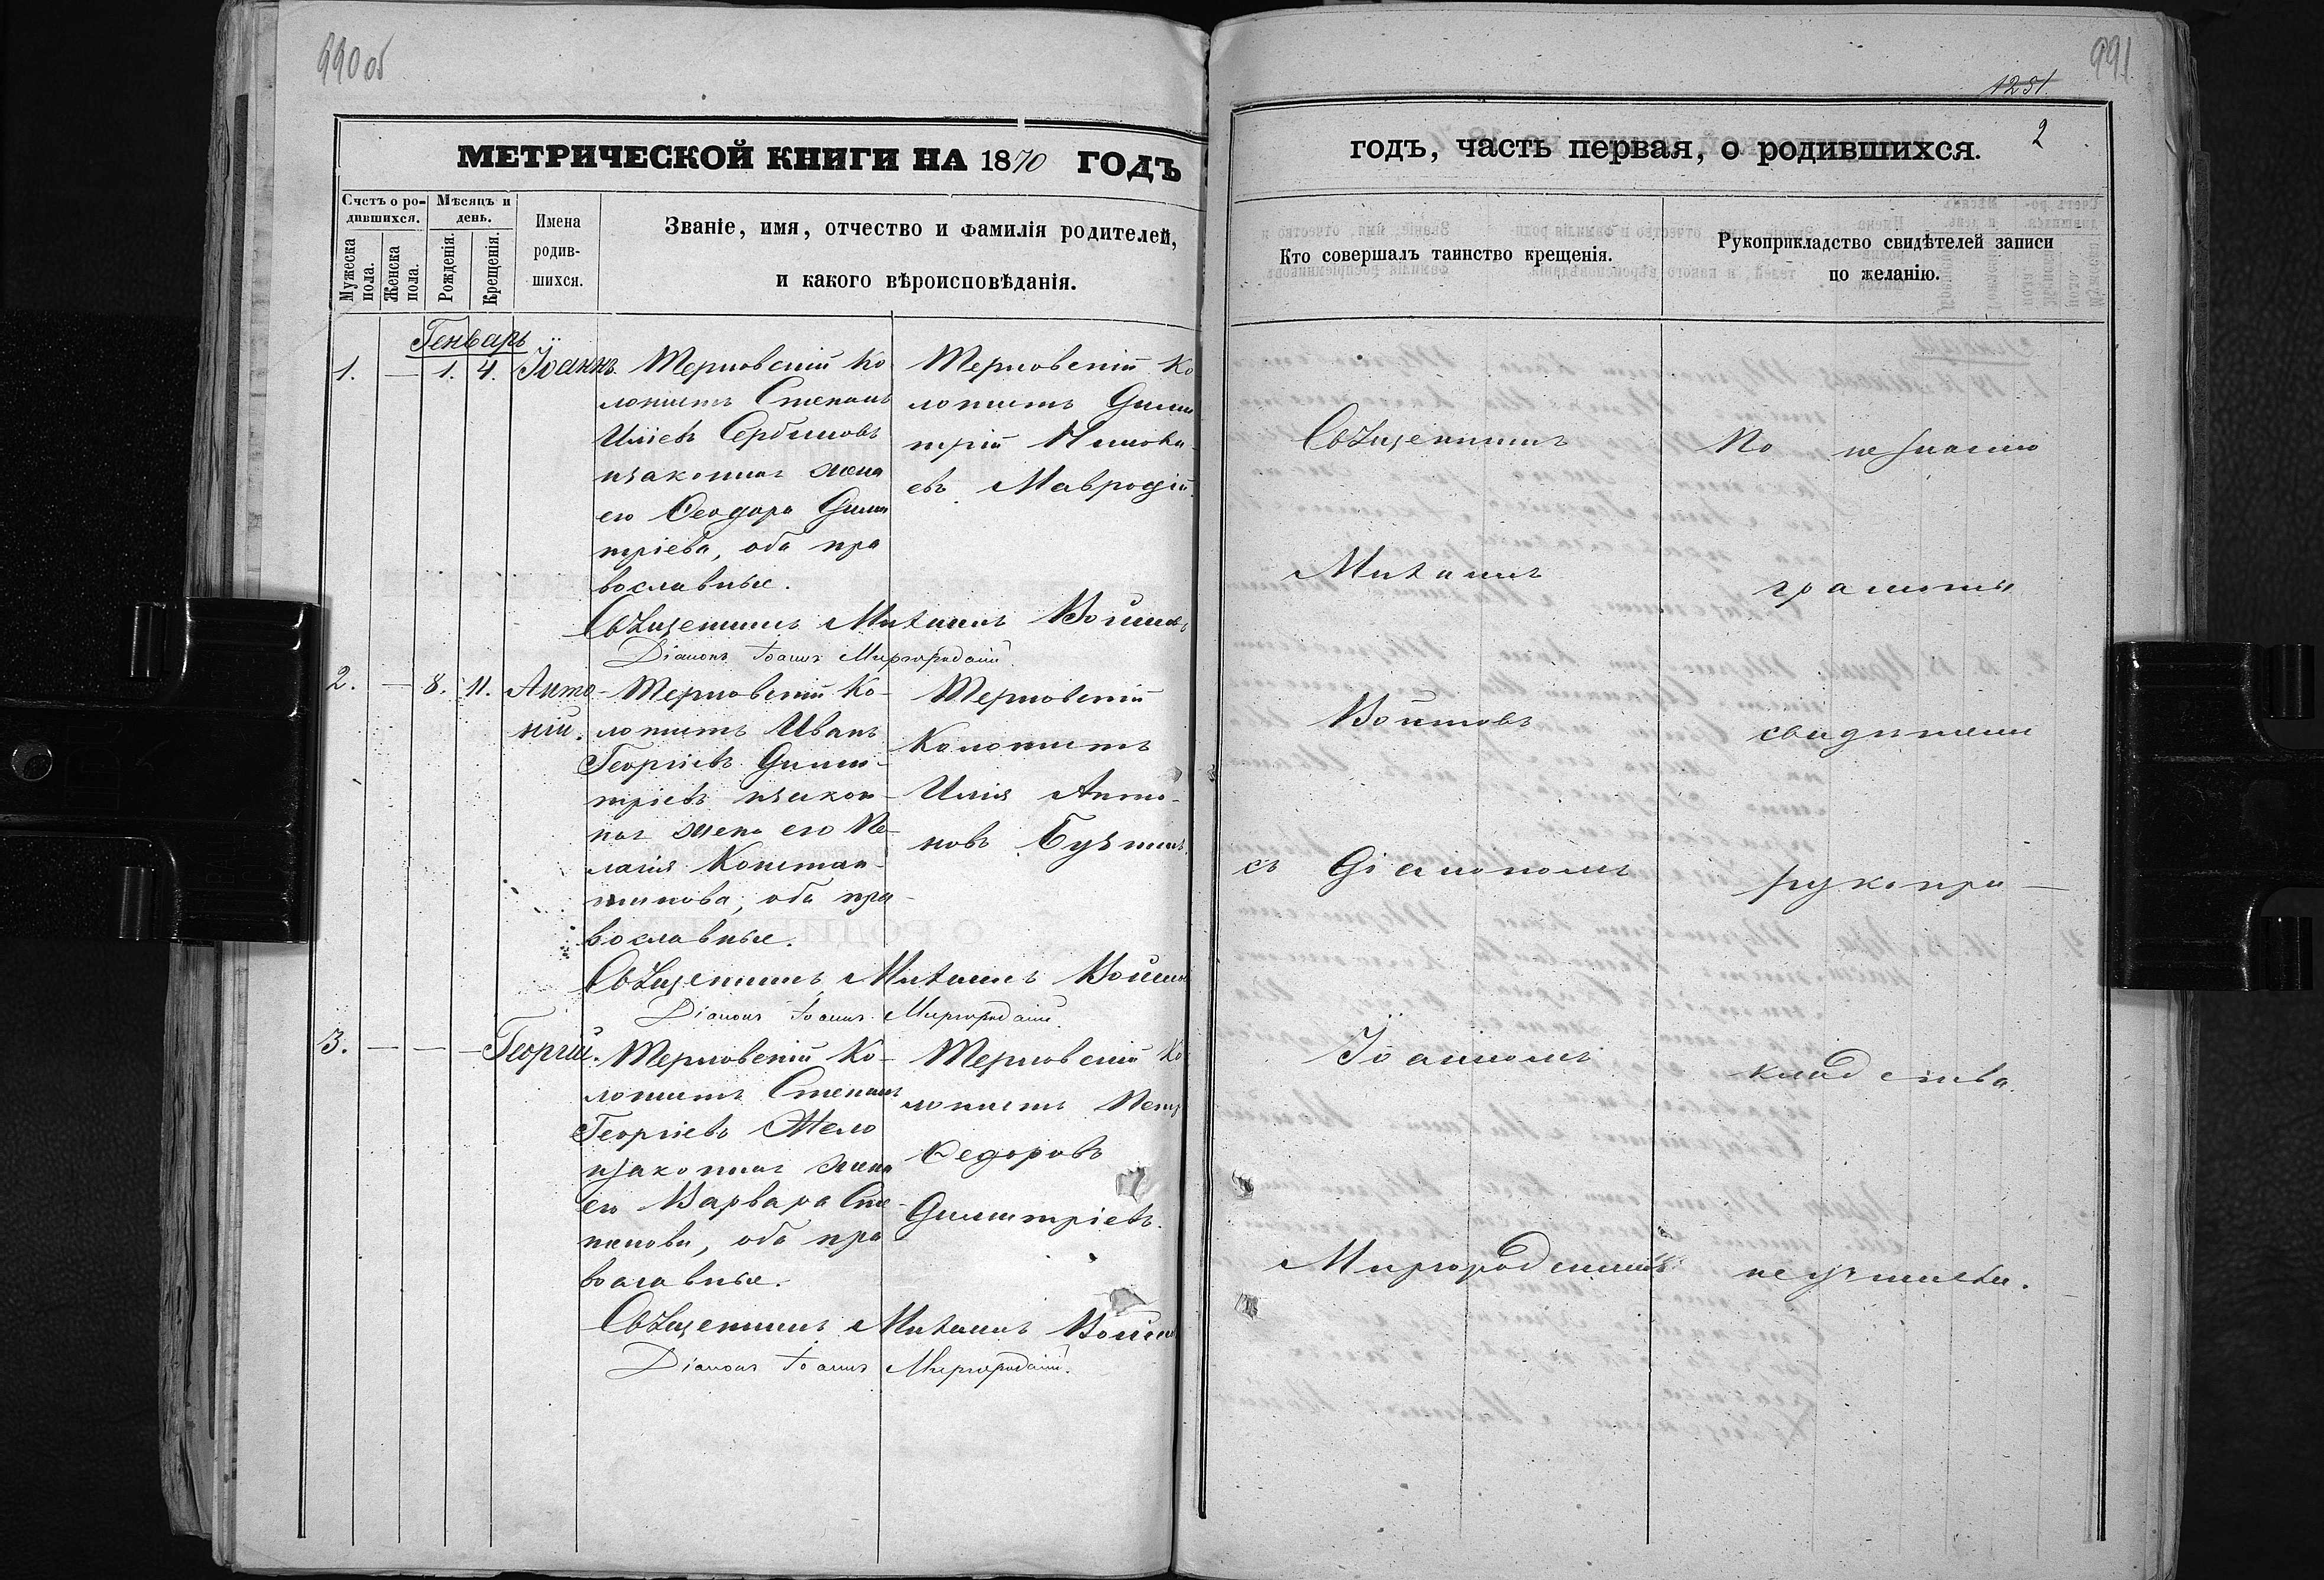 990 об
МЕТРИЧЕСКОЙ КНИГИ НА 1870 ГОДЪ
Счетъ о ро-
дившихся.
Мужеска пола.
Женска пола.
Мѣсяцъ и
день.
Рожденія.
Крещенія.
Имена
родив-
шихся.
Званіе, имя, отчество и фамилія родителей,
и какого вѣроисповѣданія.
Генварь
1. — 1. 4. Іоаннъ.
Терновскій ко
лонистъ Степанъ
Иліевъ Сербиновъ
изаконная жена
его Ѳеодора Дими
тріева, оба пра
вославные.
Терновскій ко
лонистъ Дими
трій
евъ Мавродій.
Священникъ Михаилъ Войновъ
Діаконъ Іоаннъ Миргородскій.
2. — 8. 11. Анто
ній.
Терновскій ко-
лонистъ Иванъ
Георгіевъ Дими-
тріевъ изакон-
ная жена его Пе-
лагія Констан-
тинова, оба пра-
вославные.
Терновскій
колонистъ
Илія Анто-
новъ
Священникъ Михаилъ Войновъ
Діаконъ Іоаннъ Миргородскій.
3. — — — Георгій.
Терновскій ко-
лонистъ Степанъ
Георгіевъ Жело
изаконная жена
его Варвара Сте-
панова, оба пра
вославные.
Терновскій ко
лонистъ Петръ
Ѳедоровъ
Димитріевъ.
Священникъ Михаилъ Войновъ
Діаконъ Іоаннъ Миргородскій.
991
1231.
годъ, часть первая, о родившихся.
2
Кто совершалъ таинство крещенія.
Рукоприкладство свидѣтелей записи
по желанію.
Священникъ
Михаилъ
Войновъ
съ Діакономъ
Іоанномъ
Миргородскимъ
По незнанію
грамоты
свидѣтели
рукопри—
кладства
не учинили.